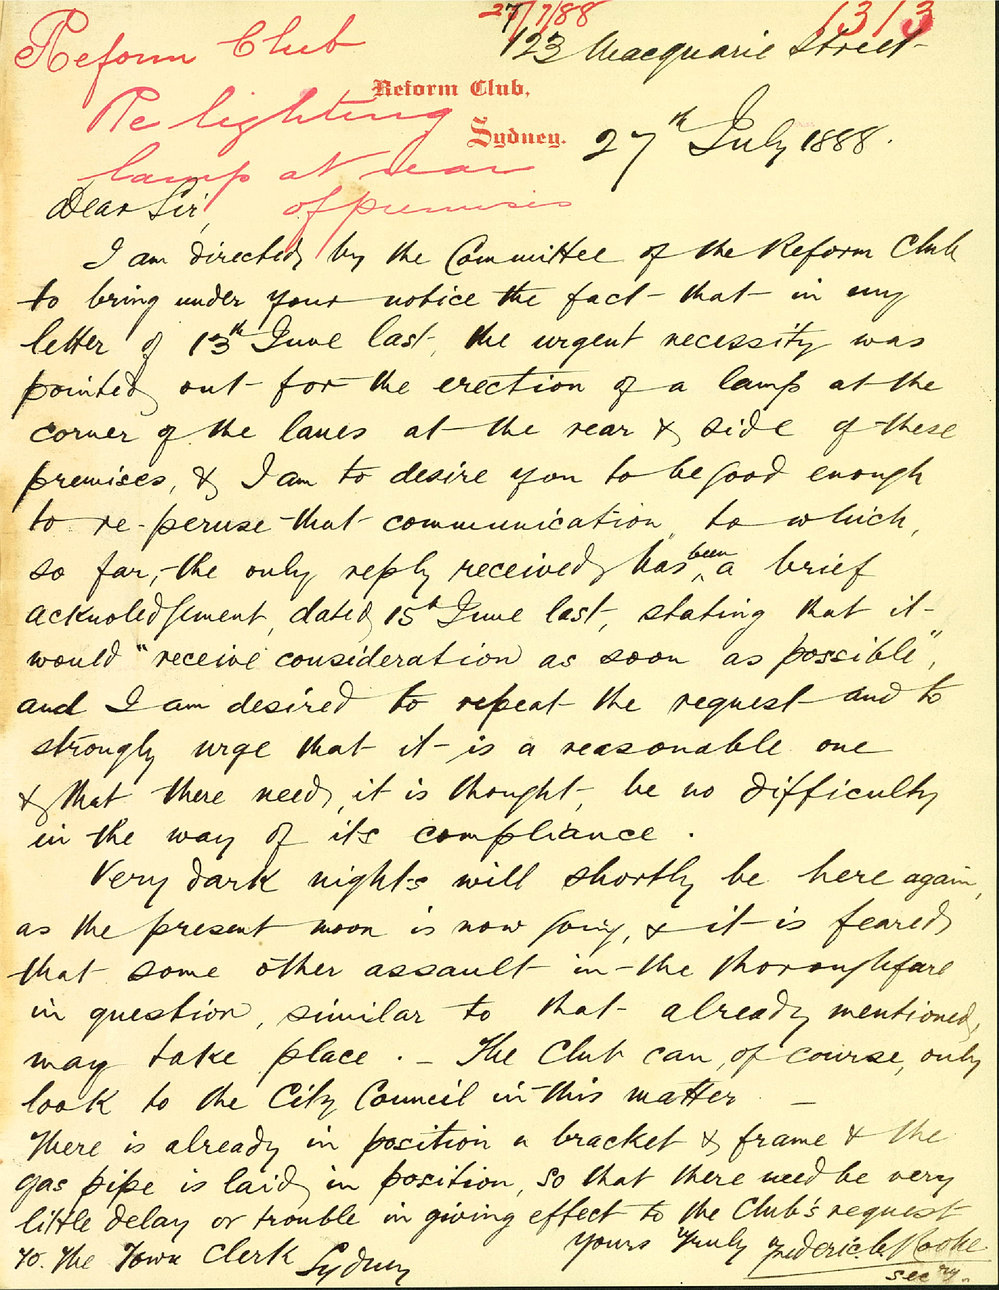 27/7/88
1313
Reform Club
Re lighting
lamp at rear
of premises
123 Macquarie Street
Reform Club,
Sydney.
27th July 1888.
Dear Sir,
I am directed by the Committee of the Reform Club
to bring under your notice the fact that in my
letter of 13th June last, the urgent necessity was
pointed out for the erection of a lamp at the
corner of the lanes at the rear & side of these
premises, & I am to desire you to be good enough
to re-peruse that communication to which,
so far, the only reply received has been a brief
acknoledgement, dated 15th June last, stating that it
would "receive consideration as soon as possible",
and I am desired to repeat the request and to
strongly urge that it is a reasonable one
& that there need, it is thought, be no difficulty
in the way of its compliance.
Very dark nights will shortly be here again,
as the present moon is now going, & it is feared
that some other assault in the thoroughfare
in question, similar to that already mentioned,
may take place. — The Club can, of course, only
look to the City Council in this matter —
There is already in position a bracket & frame & the
gas pipe is laid in position, so that there need be very
little delay or trouble in giving effect to the Club's request
Yours truly Frederic W Cooke
secry.
To. The Town Clerk Sydney